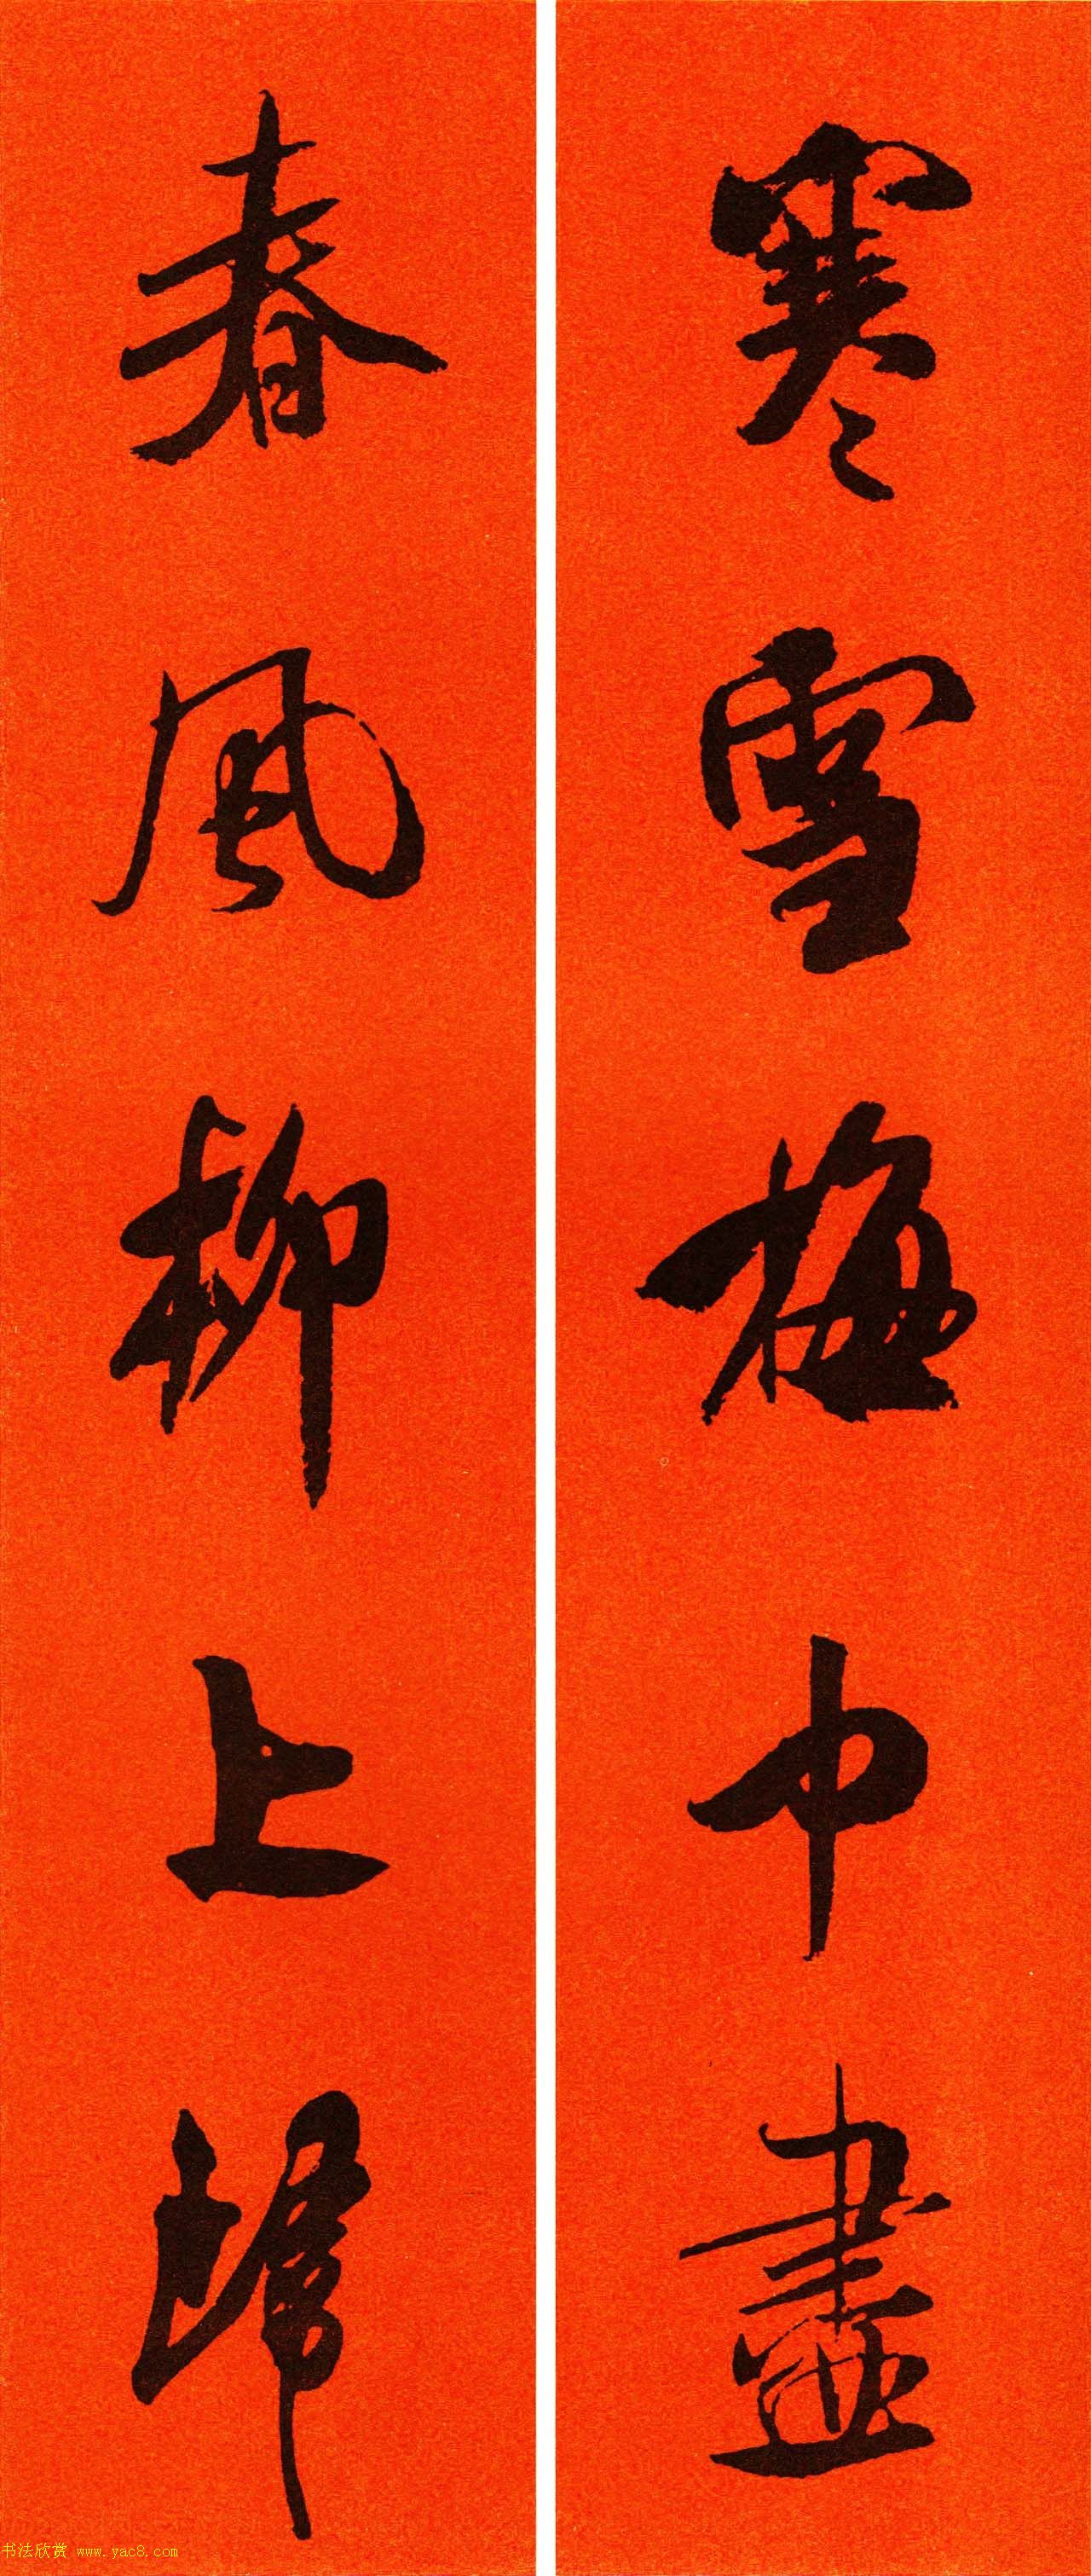 寒雪梅中盡
春風柳上歸
书法欣赏 www.yac8.com